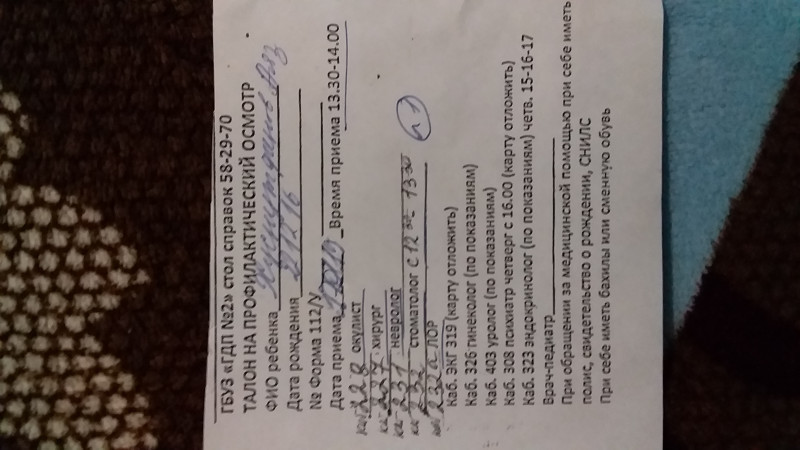 ГБУЗ «ГДП №2» стол справок 58-29-70
ТАЛОН НА ПРОФИЛАКТИЧЕСКИЙ ОСМОТР
ФИО ребенка
Дата рождения
№ Форма 112/У
Дата приема Время приема 13.30-14.00
каб 228 окулист
каб 227 хирург
каб 231 невролог
каб 232 стоматолог с 12 00 - 13 00
каб 232а ЛОР
Каб. ЭКГ 319 (карту отложить)
Каб. 326 гинеколог (по показаниям)
Каб. 403 уролог (по показаниям)
Каб. 308 психиатр четверг с 16.00 (карту отложить)
Каб. 323 эндокринолог (по показаниям) четв. 15-16-17
Врач-педиатр
При обращении за медицинской помощью при себе иметь
полис, свидетельство о рождении, СНИЛС
При себе иметь бахилы или сменную обувь